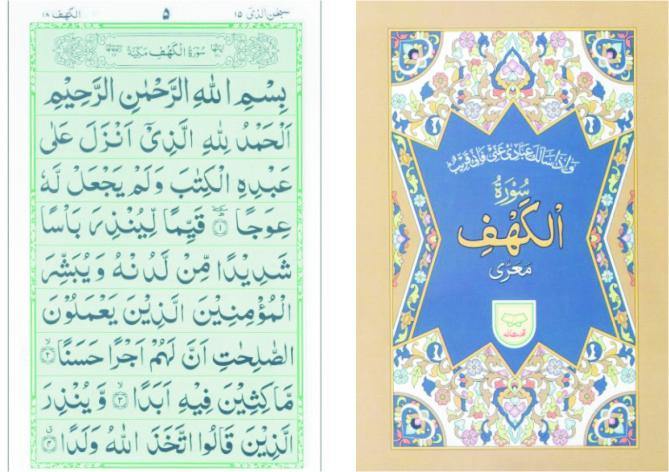 سبحن الذى ١٥ ۵ الكهف ١٨
سُوْرَةُ الْكَهْفِ مَكِّيَّةٌ
بِسْمِ اللهِ الرَّحْمٰنِ الرَّحِيْمِ
اَلْحَمْدُ لِلّٰهِ الَّذِىْٓ اَنْزَلَ عَلٰى
عَبْدِهِ الْكِتٰبَ وَلَمْ يَجْعَلْ لَّهٗ
عِوَجًا ۝١ قَيِّمًا لِّيُنْذِرَ بَاْسًا
شَدِيْدًا مِّنْ لَّدُنْهُ وَيُبَشِّرَ
الْمُؤْمِنِيْنَ الَّذِيْنَ يَعْمَلُوْنَ
الصّٰلِحٰتِ اَنَّ لَهُمْ اَجْرًا حَسَنًا ۝٢
مَّاكِثِيْنَ فِيْهِ اَبَدًا ۝٣ وَّيُنْذِرَ
الَّذِيْنَ قَالُوا اتَّخَذَ اللهُ وَلَدًا ۝٤
وَاِذَا سَاَلَكَ عِبَادِىْ عَنِّىْ فَاِنِّىْ قَرِيْبٌ
سُوْرَةُ
اَلْكَهْفِ
مَعَرّٰى